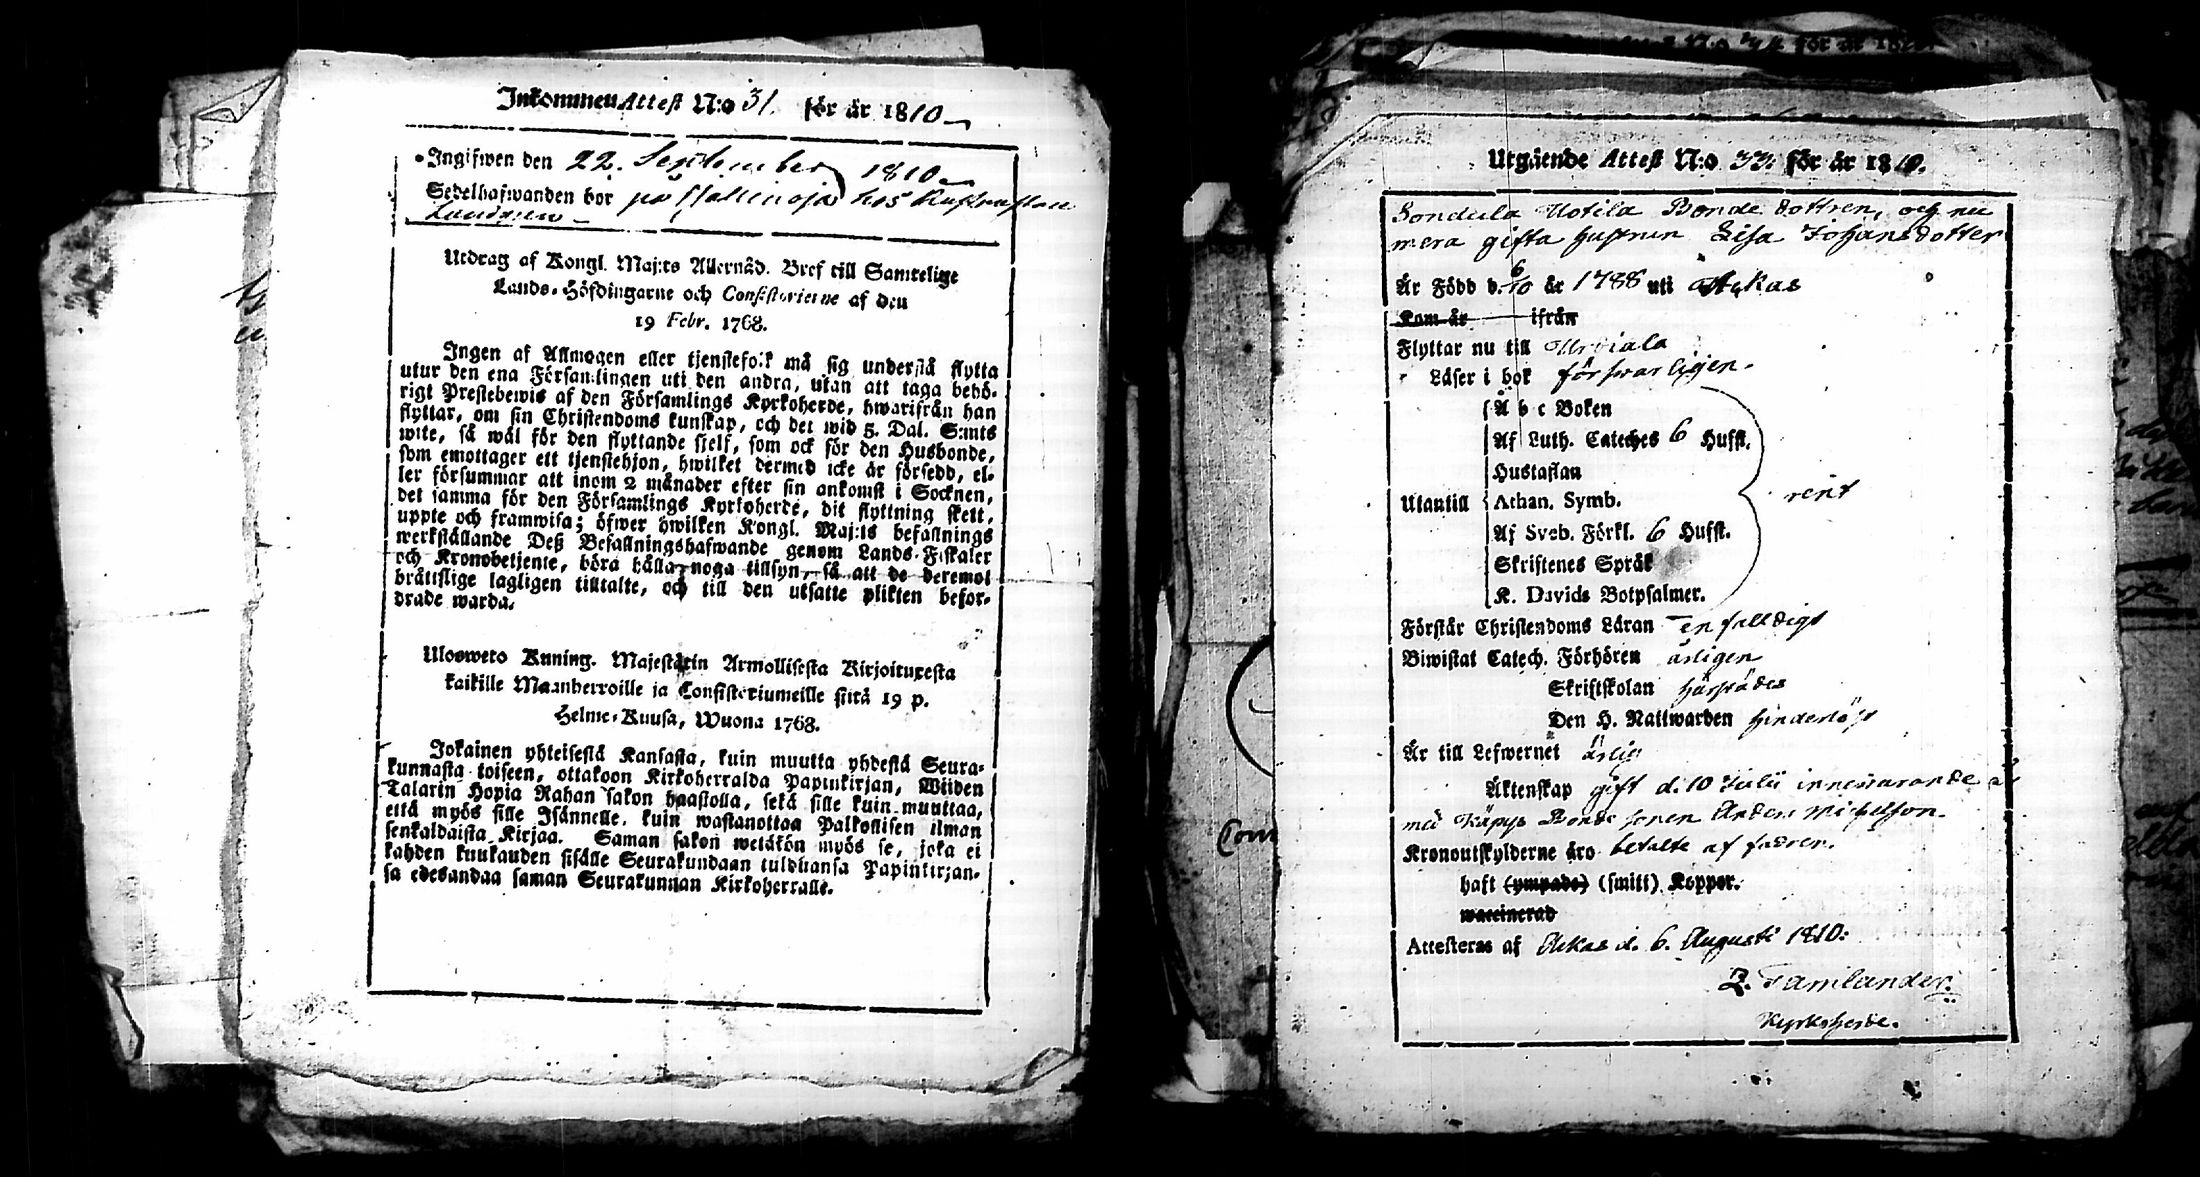 Inkommen Attest N:o 31. för år 1810
Ingifwen den 22. September 1810
Sedelhafwanden bor på hos
Lundgren
Utdrag af Kongl. Maj:ts Allernåd. Bref till Samtelige
Lands-Höfdingarne och Consistorierne af den
19 Febr. 1768.
Ingen af Allmogen eller tjenstefolk må sig understå flytta
utur den ena Församlingen uti den andra, utan att taga behö-
rigt Prestebewis af den Församlings Kyrkoherde, hwarifrån han
flyttar, om sin Christendoms kunskap, och det wid 5. Dal. S:mts
wite, så wäl för den flyttande sjelf, som ock för den Husbonde,
som emottager ett tjenstehjon, hwilket dermed icke är försedd, el-
ler försummar att inom 2 månader efter sin ankomst i Socknen,
det samma för den Församlings Kyrkoherde, dit flyttning skett,
uppte och framwisa; öfwer hwilken Kongl. Maj:ts befallnings
werkställande Deß Befallningshafwande genom Lands-Fiskaler
och Kronobetjente, böra hålla noga tillsyn, så att de deremot
bråttslige lagligen tilltalte, och till den utsatte plikten befor-
drade warda.
Ulosweto Kuning. Majestätin Armollisesta Kirjoituxesta
kaikille Maanherroille ja Consistoriumeille siitä 19 p.
Helme-Kuusa, Wuona 1768.
Jokainen yhteisestä Kansasta, kuin muutta yhdestä Seura-
kunnasta toiseen, ottakoon Kirkoherralda Papinkirjan, Wiiden
Talarin Hopia Rahan sakon haastolla, sekä sille kuin muuttaa,
että myös sille Isännelle, kuin wastanottaa Palkollisen ilman
senkaldaista Kirjaa. Saman sakon wetäkön myös se, joka ei
kahden kuukauden sisälle Seurakundaan tulduansa Papinkirjan-
sa edesandaa saman Seurakunnan Kirkoherralle.
Utgående Attest N:o 33. för år 1810.
Sondula Uotila Bonde dottren, och nu
mera gifta hustrun Lisa Johansdotter
Är Född d. 6/10 år 1788 uti Ackas
Kom år ifrån
Flyttar nu till Urdiala
Läser i bok försvarligen.
A b c Boken
Af Luth. Cateches 6 Hufst.
Hustaflan
Utantill Athan. Symb. rent
Af Sveb. Förkl. 6 Hufst.
Skriftenes Språk
K. Davids Botpsalmer.
Förstår Christendoms Läran enfaldigt
Biwistat Catech. Förhören årligen
Skriftskolan härstädes
Den H. Nattwarden hinderlöst
Är till Lefwernet ärlig
Äktenskap gift d. 10 Julii innewarande år
med Käpys Bonde sonen Anders Michelsson.
Kronoutskylderne äro betalte af fadren.
haft (ympade) (smitt) Koppor.
waccinerad
Attesteras af Ackas d. 6. Augusti 1810:
Z. Tamlander.
Kyrkoherde.